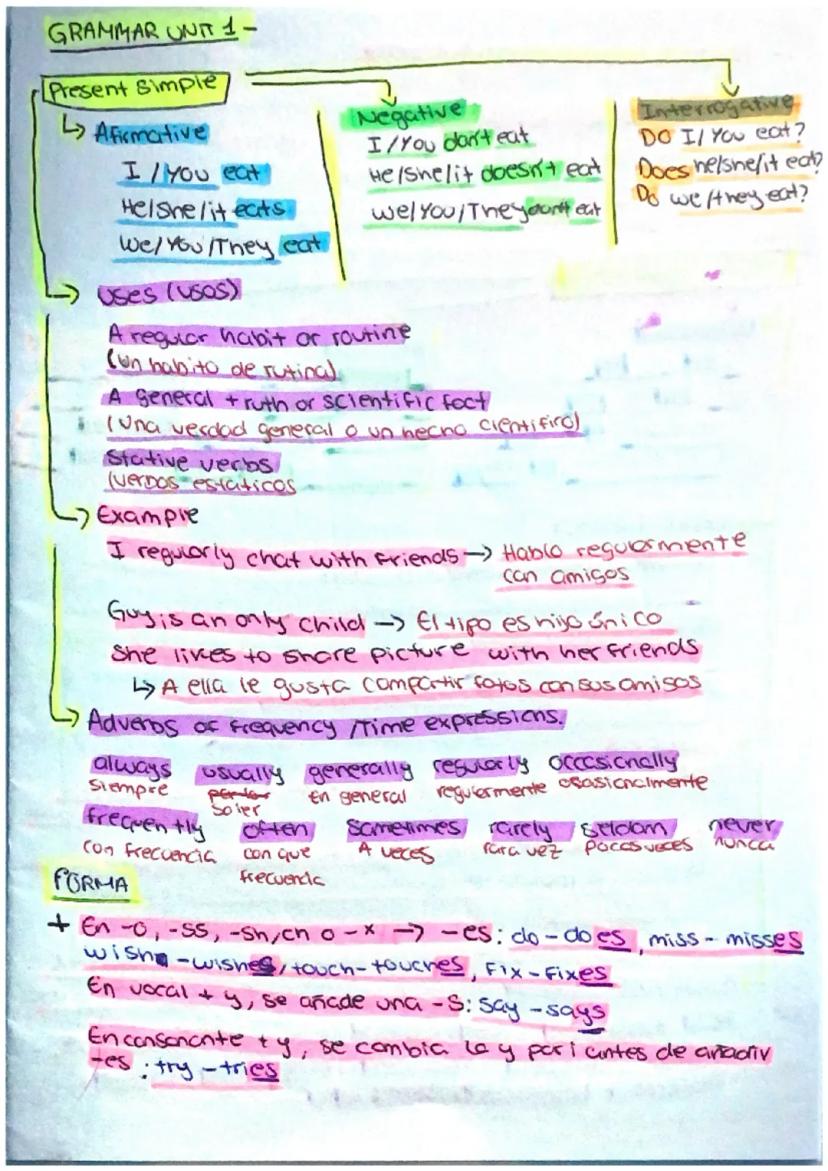 GRAMMAR UNIT 1-
Present simple
Afirmative
I/You eat
He/she/it eats
We/You/They eat
Negative
I/You don't eat
He/She/it doesn't eat
We/You/They don't eat
Interrogative
Do I/You eat?
Does he/she/it eat?
Do we/they eat?
Uses (usos)
A regular habit or routine
(Un habito de rutina)
A general truth or scientific fact
(Una verdad general o un hecho cientifico)
Stative verbs
(verbos estaticos
Example
I regularly chat with friends → Hablo regularmente
con amigos
Guy is an only child → El tipo es hijo único
She likes to share picture with her friends
↳ A ella le gusta compartir fotos con sus amigos
Adverbs of frequency /Time expressions.
always usually generally regularly occasionally
siempre soler En general regularmente ocasionalmente
frequently often sometimes rarely seldom never
con frecuencia con que frecuencia A veces rara vez pocas veces nunca
FORMA
+ En -o, -ss, -sh, ch o -x → -es: do - does, miss - misses
wish - wishes, touch - touches, Fix - Fixes
En vocal + y, se añade una -s: say - says
En consonante + y, se cambia la y por i antes de añadir
-es : try - tries